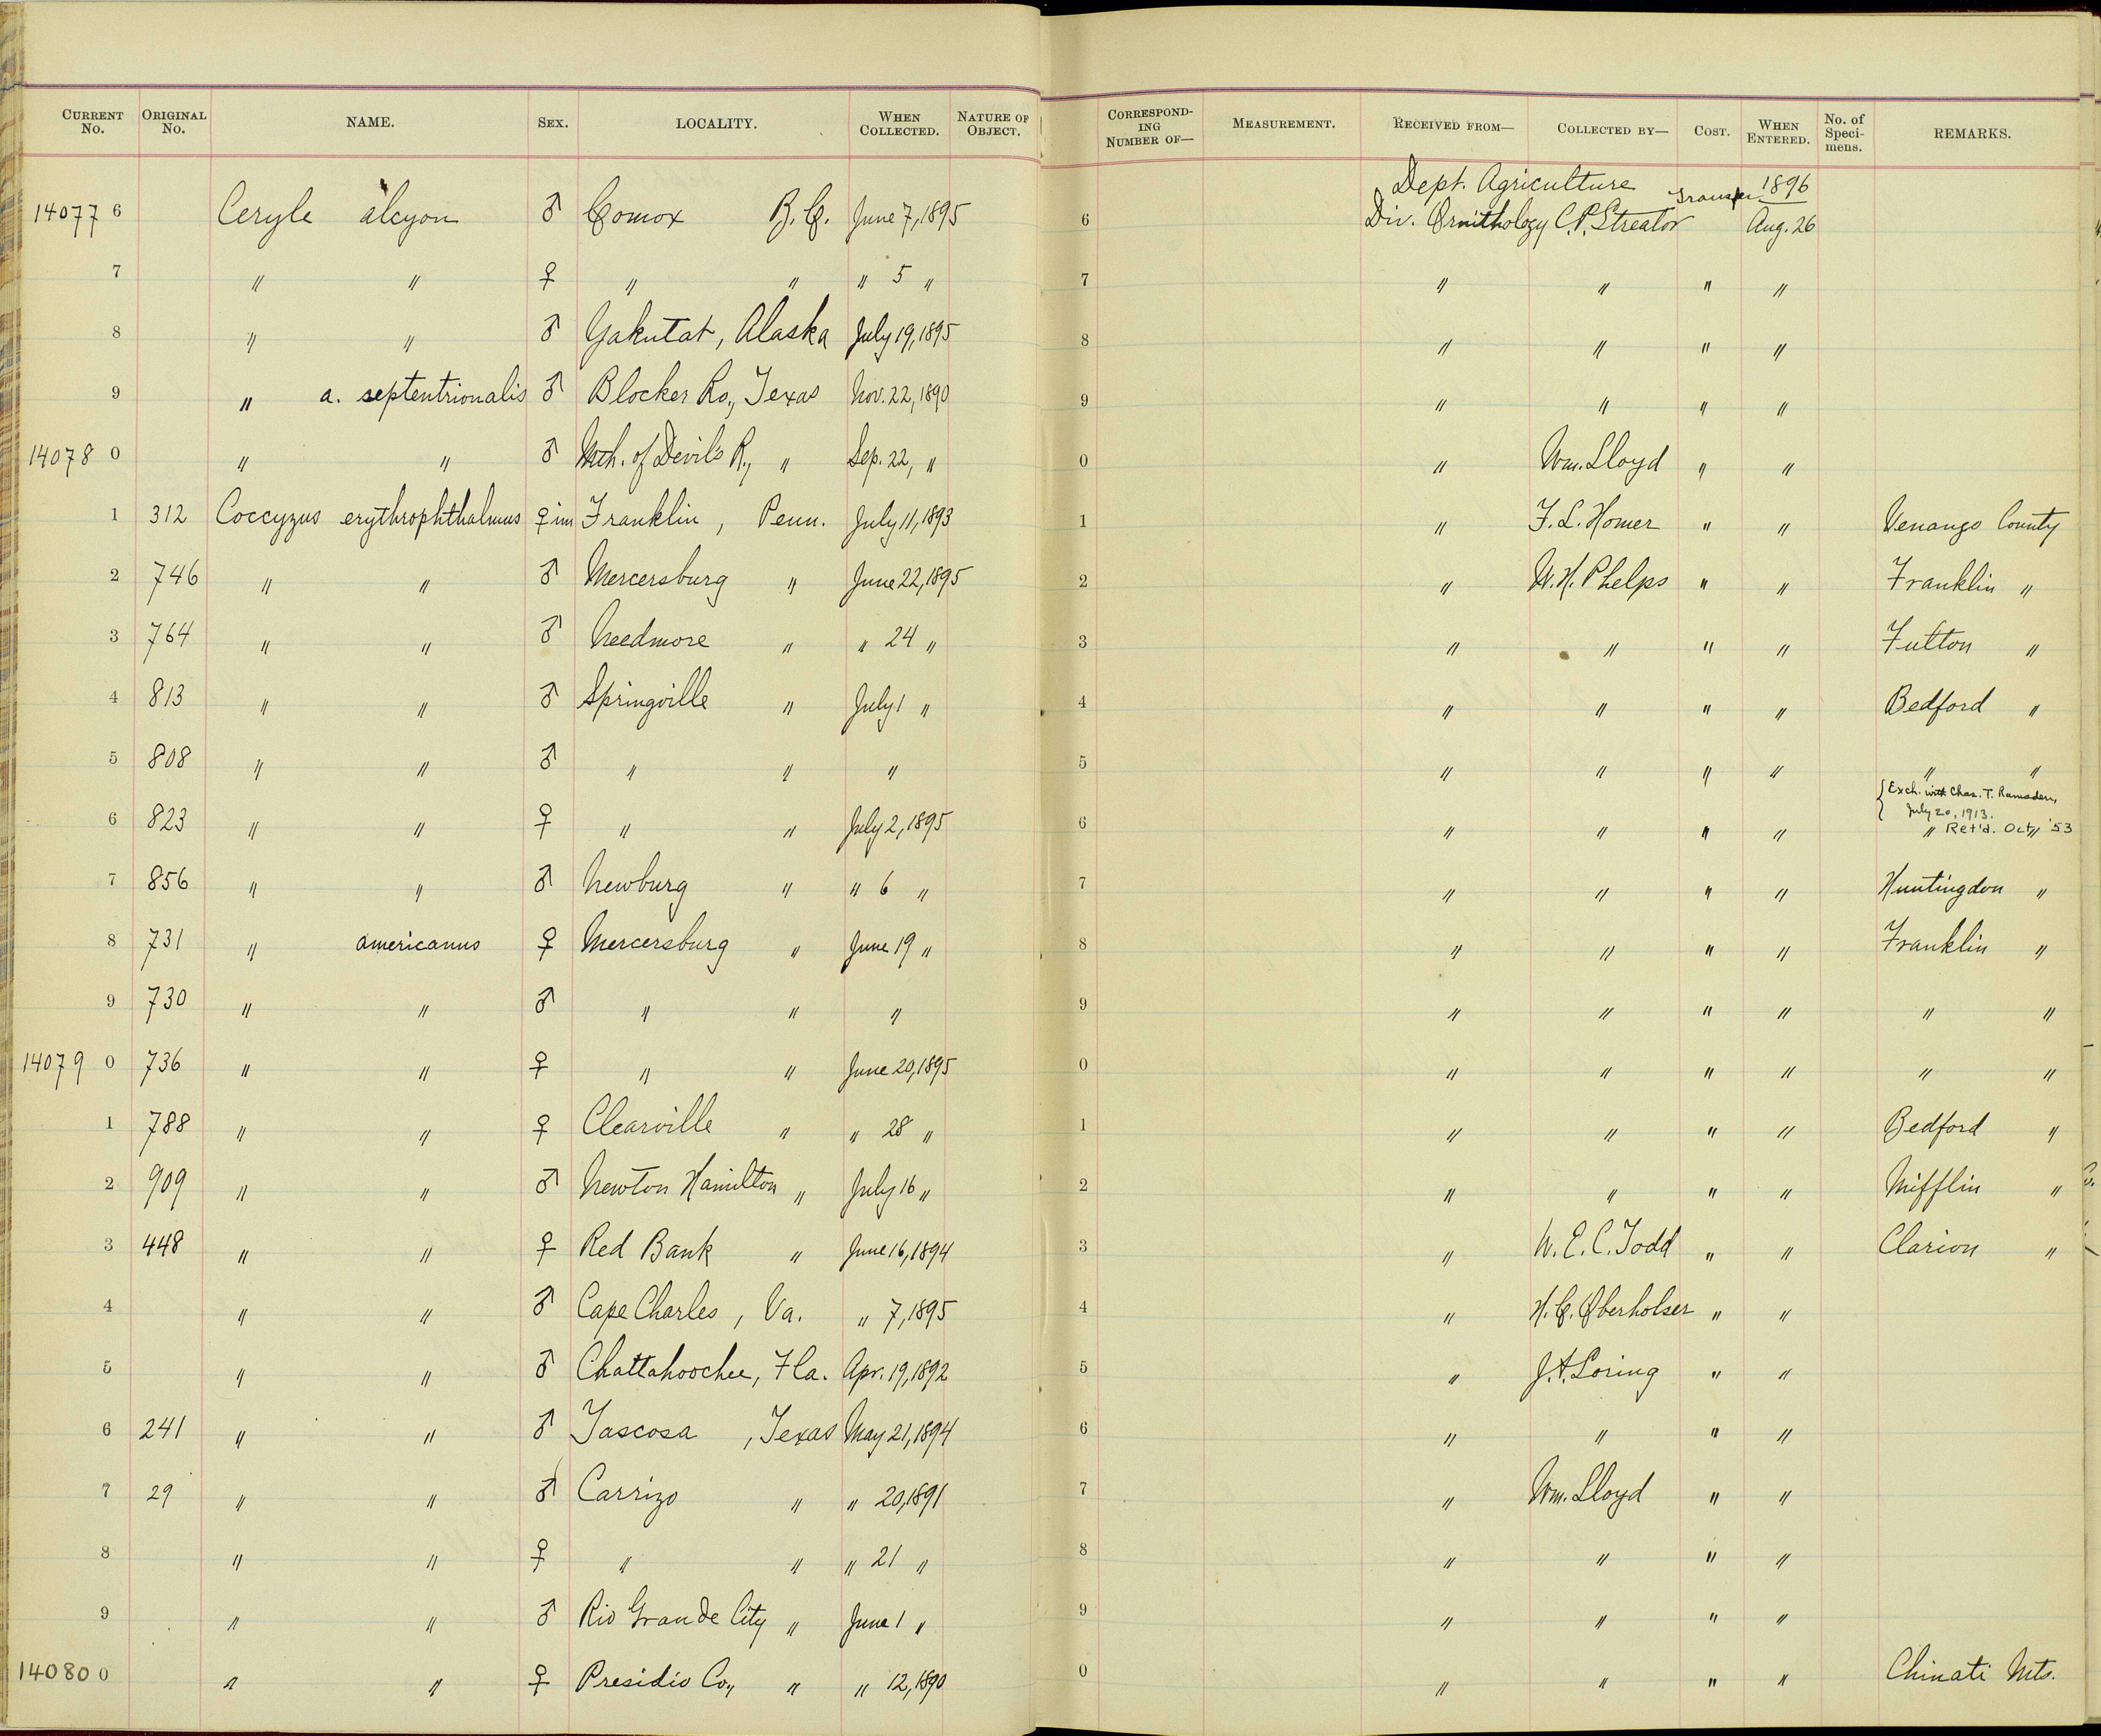 CURRENT No. ORIGINAL No. NAME. SEX. LOCALITY. WHEN COLLECTED. NATURE OF OBJECT. CORRESPONDING NUMBER OF— MEASUREMENT. RECEIVED FROM— COLLECTED BY— COST. WHEN ENTERED. No. of Specimens. REMARKS.
Dept. Agriculture 1896
14077 6 Ceryle alcyon ♂ Comox B.C. June 7, 1895 6 Div. Ornithology C.P. Streator Transfer Aug. 26
7 " " ♀ " " " 5 " 7 " " " "
8 " " ♂ Yakutat, Alaska July 19, 1895 8 " " " "
9 " a. septentrionalis ♂ Blocker Ro., Texas Nov. 22, 1890 9 " " " "
14078 0 " " ♂ Mth. of Devils R., " Sep. 22, " 0 " Wm. Lloyd " "
1 312 Coccyzus erythrophthalmus ♀ im Franklin, Penn. July 11, 1893 1 " F. L. Homer " " Venango County
2 746 " " ♂ Mercersburg " June 22, 1895 2 " W. H. Phelps " " Franklin "
3 764 " " ♂ Needmore " " 24 " 3 " " " " Fulton "
4 813 " " ♂ Springville " July 1 " 4 " " " " Bedford "
5 808 " " ♂ " " " 5 " " " " " "
{Exch. with Chas. T. Ramsden,
July 20, 1913.
6 823 " " ♀ " " July 2, 1895 6 " " " " " Ret'd. Oct " '53
7 856 " " ♂ Newburg " " 6 " 7 " " " " Huntingdon "
8 731 " americanus ♀ Mercersburg " June 19 " 8 " " " " Franklin "
9 730 " " ♂ " " " 9 " " " " " "
14079 0 736 " " ♀ " " June 20, 1895 0 " " " " " "
1 788 " " ♀ Clearville " " 28 " 1 " " " " Bedford "
2 909 " " ♂ Newton Hamilton " July 16 " 2 " " " " Mifflin "
3 448 " " ♀ Red Bank " June 16, 1894 3 " W. E. C. Todd " " Clarion "
4 " " ♂ Cape Charles, Va. " 7, 1895 4 " H. C. Oberholser " "
5 " " ♂ Chattahoochee, Fla. Apr. 19, 1892 5 " J. A. Loring " "
6 241 " " ♂ Tascosa, Texas May 21, 1894 6 " " " "
7 29 " " ♂ Carrizo " " 20, 1891 7 " Wm. Lloyd " "
8 " " ♀ " " " 21 " 8 " " " "
9 " " ♂ Rio Grande City " June 1 " 9 " " " "
14080 0 " " ♀ Presidio Co., " " 12, 1890 0 " " " " Chinati Mts.